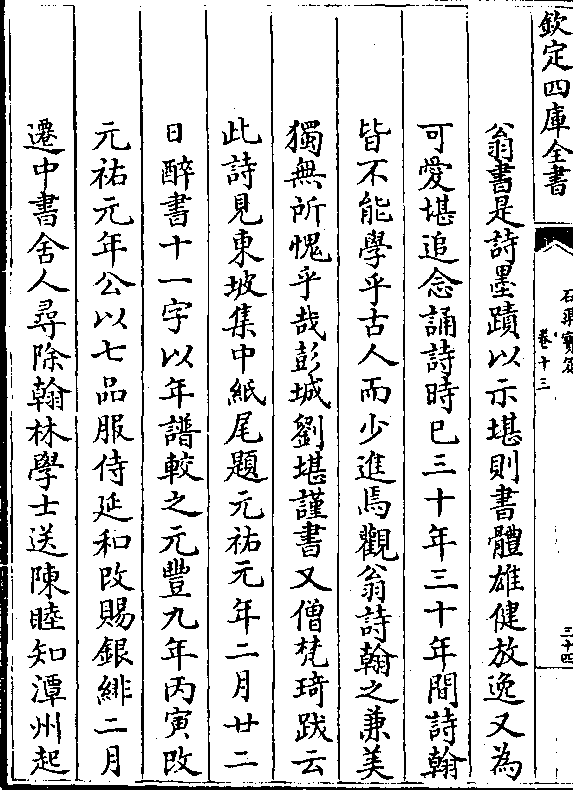 欽定四庫全書
石渠寶笈
卷十三
三十四
翁書是詩墨蹟以示堪則書體雄健放逸又為
可愛堪追念誦詩時已三十年三十年間詩翰
皆不能學乎古人而少進焉觀翁詩翰之兼美
獨無所愧乎哉彭城劉堪謹書又僧梵琦跋云
此詩見東坡集中紙尾題元祐元年二月廿二
日醉書十一字以年譜較之元豐九年丙寅改
元祐元年公以七品服侍延和改賜銀緋二月
遷中書舍人尋除翰林學士送陳睦知潭州起